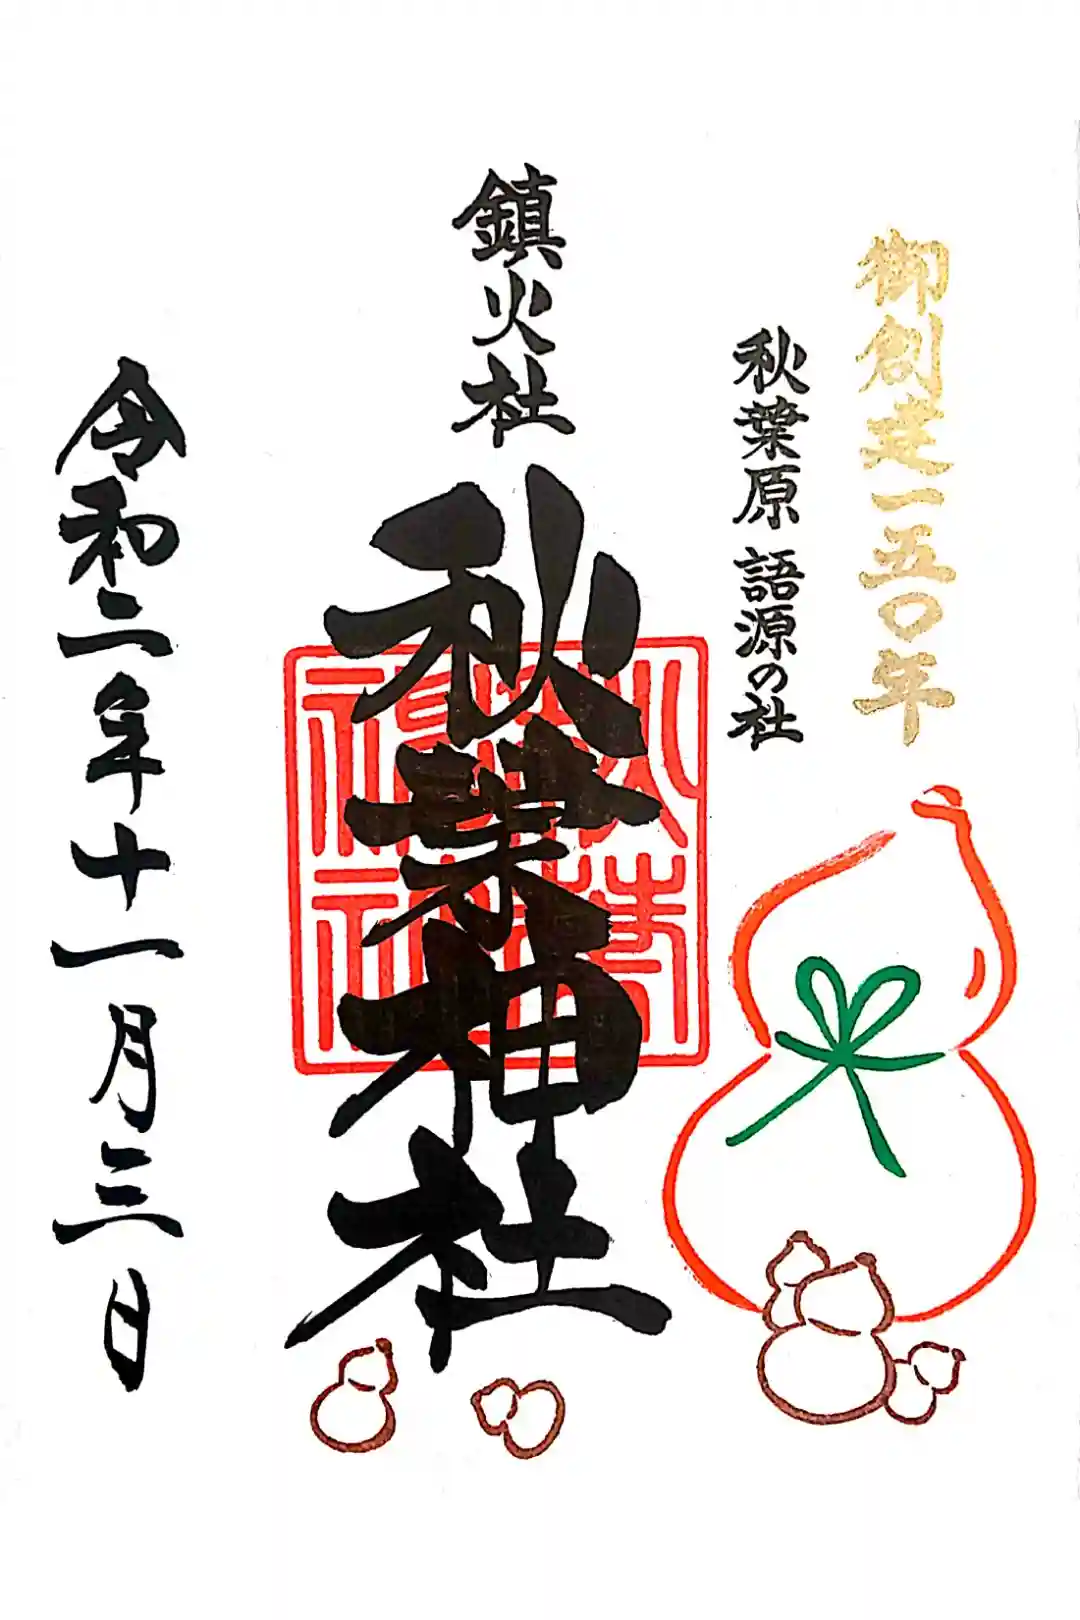 御創建一五〇年
秋葉原 語源の社
鎮火社
秋葉神社
令和二年十一月三日